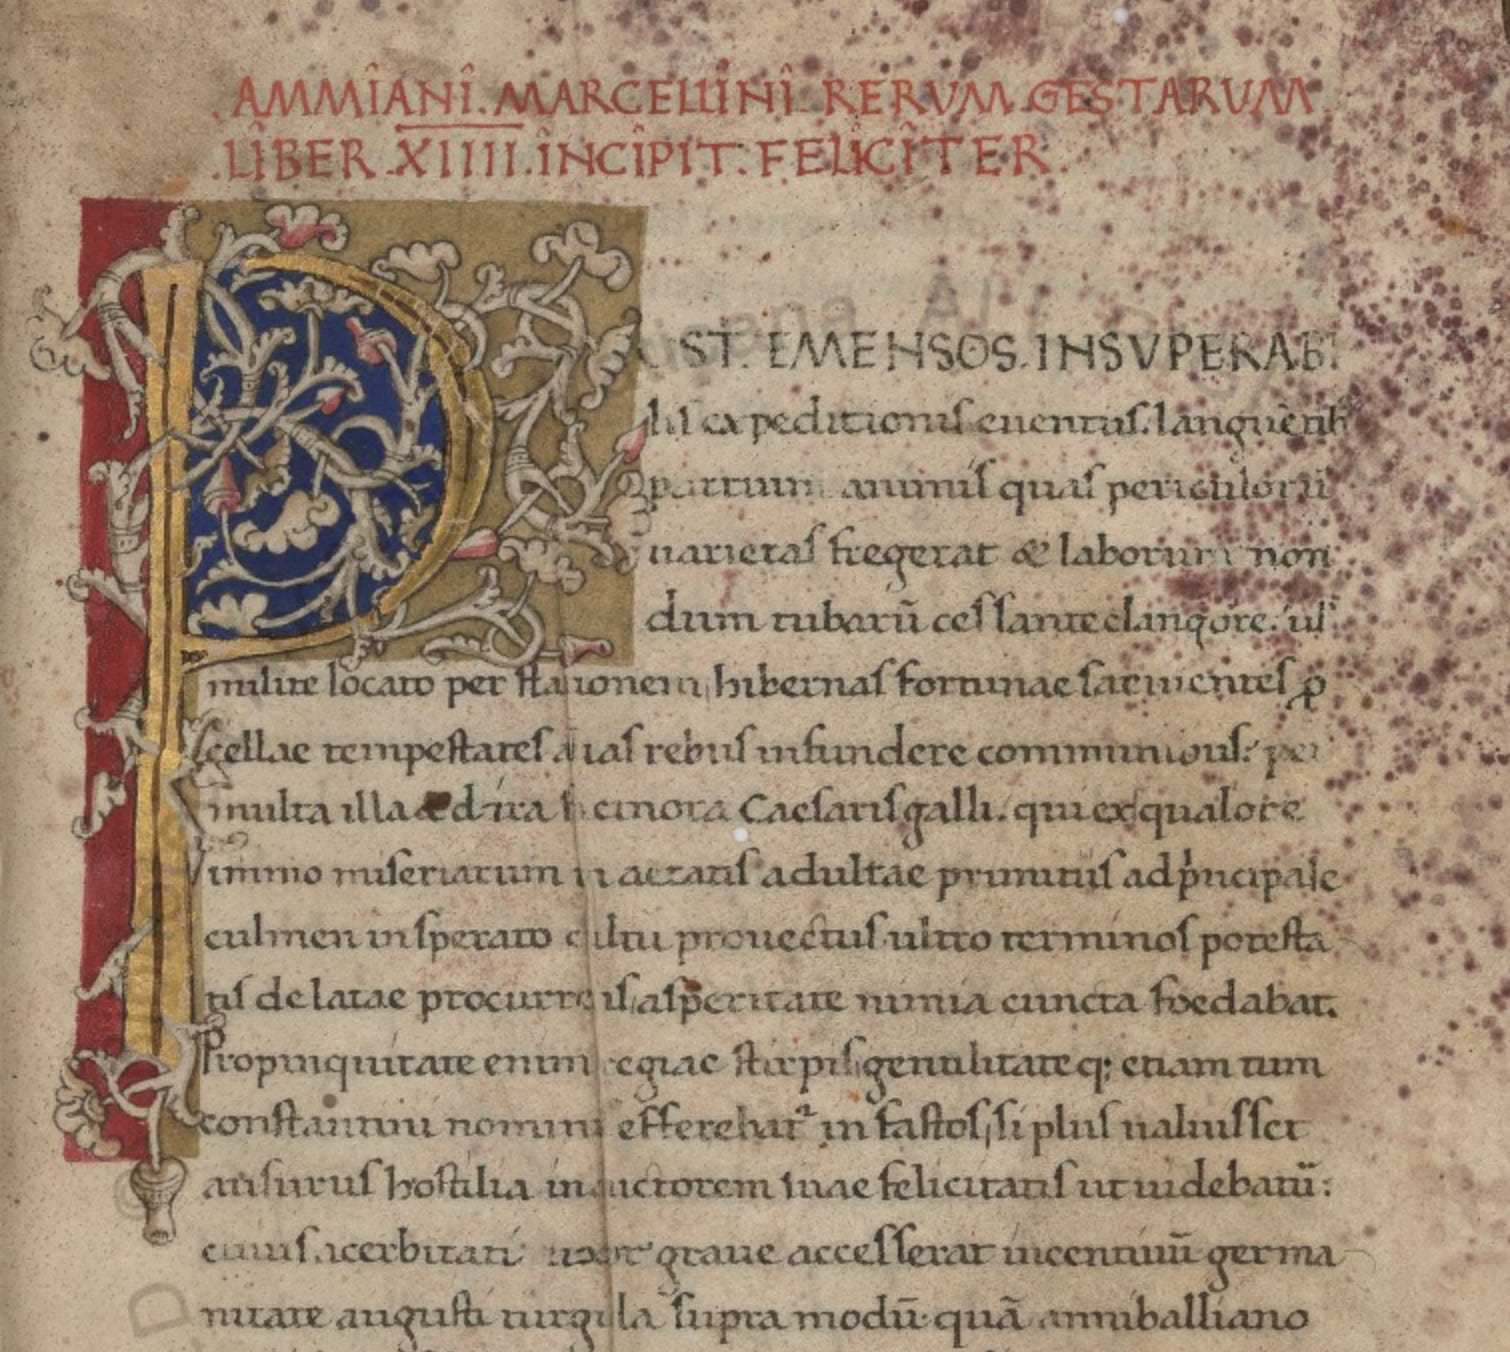 .AMMIANI.MARCELLINI.RERVM.GESTARUM
.LIBER.XIIII.INCIPIT.FELICITER.
POST. EMENSOS.INSVPERABI
lis expeditionis euentus. languētib;
partium animis quas periculorū
uarietas fregerat & laborum non
dum tubarū cessante clangore. uł
milite locato per stationem hibernas fortunae saeuientes ꝓ
cellae tempestates alias rebus infundere communibus: per
multa illa & dira facinora Caesaris galli. qui ex squalore
immo miseriarum in aetatis adultae primitus ad principale
culmen insperato cultu prouectus ultro terminos potesta
tis delatae procurrens asperitate nimia cuncta foedabat.
Propinquitate enim regiae stirpis gentilitateq; etiam tum
constantini nominis efferebat᷑ in fastos, si plus ualuisset
ausurus hostilia in auctorem suae felicitatis ut uidebatū:
cuius acerbitati uxor graue accesserat incentiuū germa
nitate augusti turgida supra modū. quā anniballiano